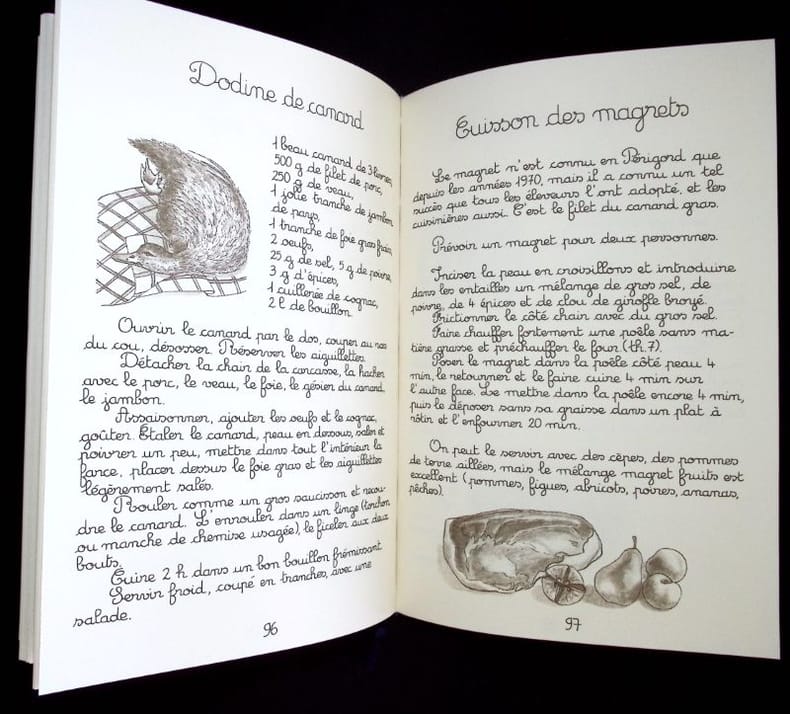 Dodine de canard
1 beau canard de 3 livres,
500 g de filet de porc,
250 g de veau,
1 jolie tranche de jambon
de pays,
1 tranche de foie gras frais,
2 oeufs,
25 g de sel, 5 g de poivre,
3 g d'épices,
1 cuillerée de cognac,
2 l de bouillon
Ouvrir le canard par le dos, couper au ras
du cou, désosser. Réserver les aiguillettes.
Détacher la chair de la carcasse, la hacher
avec le porc, le veau, le foie, le gésier du canard,
le jambon.
Assaisonner, ajouter les oeufs et le cognac,
goûter. Étaler le canard, peau en dessous, saler et
poivrer un peu, mettre dans tout l'intérieur la
farce, placer dessus le foie gras et les aiguillettes
légèrement salés.
Rouler comme un gros saucisson et recou-
dre le canard. L'enrouler dans un linge (torchon
ou manche de chemise usagée), le ficeler aux deux
bouts.
Cuire 2 h dans un bon bouillon frémissant
Servir froid, coupé en tranches, avec une
salade.
96
Cuisson des magrets
Le magret n'est connu en Périgord que
depuis les années 1970, mais il a connu un tel
succès que tous les éleveurs l'ont adopté, et les
cuisinières aussi. C'est le filet du canard gras.
Prévoir un magret pour deux personnes.
Inciser la peau en croisillons et introduire
dans les entailles un mélange de gros sel, de
poivre, de 4 épices et de clou de girofle broyé.
Frictionner le côté chair avec du gros sel.
Faire chauffer fortement une poêle sans ma-
tière grasse et préchauffer le four (th.7).
Poser le magret dans la poêle côté peau 4
min, le retourner et le faire cuire 4 min sur
l'autre face. Le mettre dans la poêle encore 4 min,
puis le déposer sans sa graisse dans un plat à
rôtir et l'enfourner 20 min.
On peut le servir avec des cèpes, des pommes
de terre aillées, mais le mélange magret fruits est
excellent (pommes, figues, abricots, poires, ananas,
pêches).
97